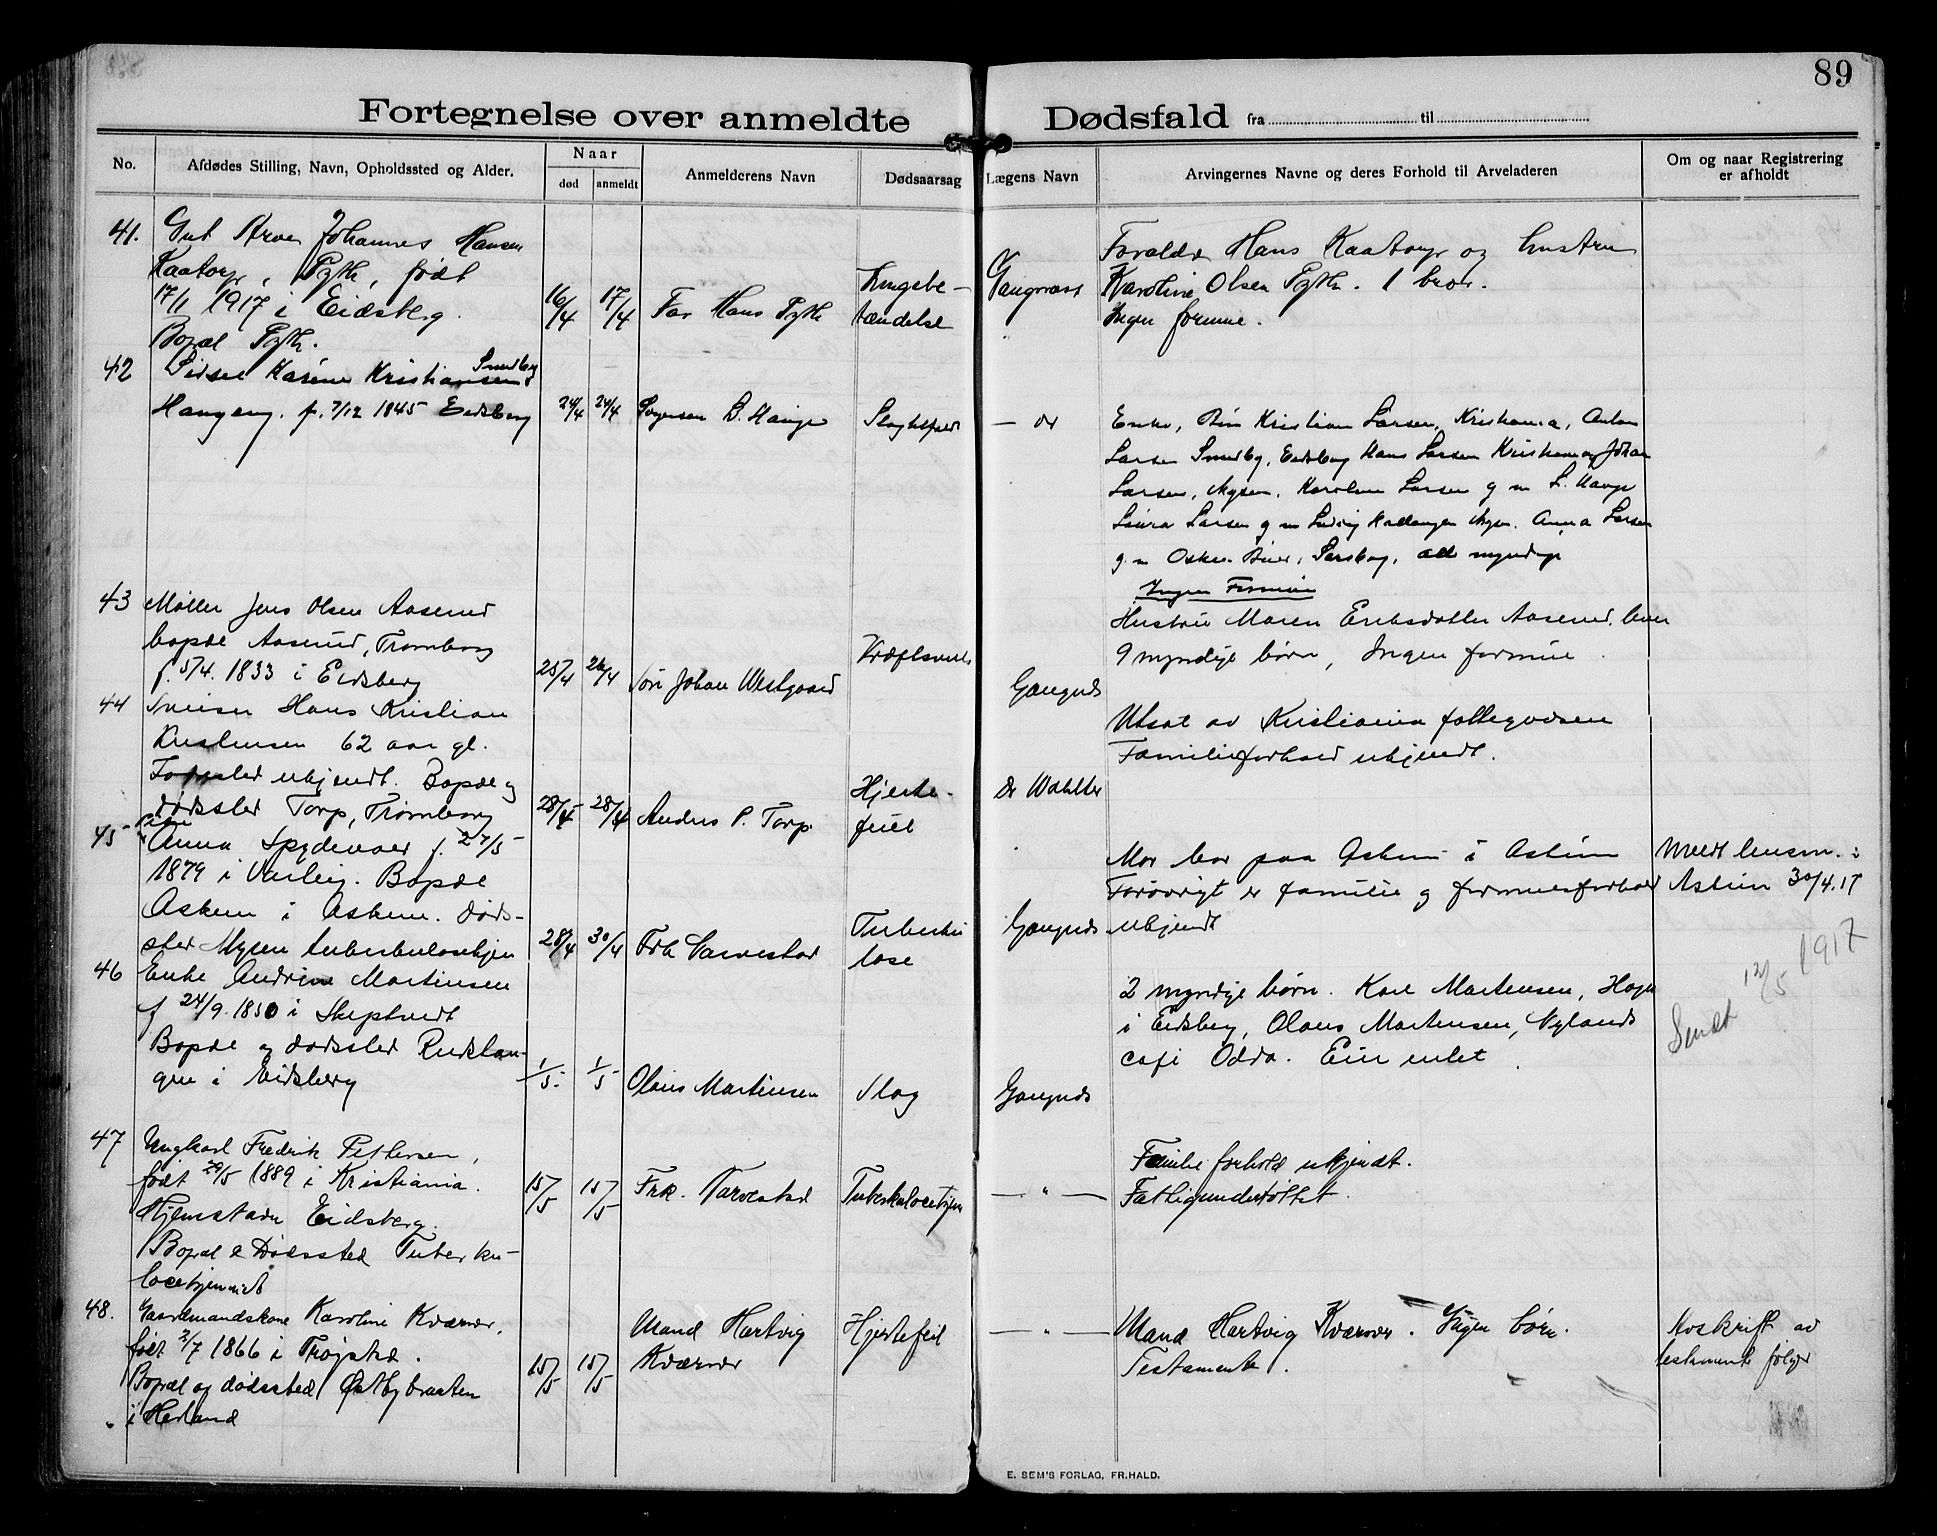 89
Fortegnelse over anmeldte Dødsfald fra til
No.
Afdødes Stilling, Navn, Opholdssted og Alder.
Naar
død
anmeldt
Anmelderens Navn
Dødsaarsag
Lægens Navn
Arvingernes Navne og deres Forhold til Arveladeren
Om og naar Registrering
er afholdt
41.
Gut Arve Johannes Hansen
Kaatorp, født
17/1 1917 i Eidsberg.
Bopæl
16/4
17/4
Far Hans
Lungebe-
tændelse
Hans Kaatorp og hustru
Karoline Olsen 1 bror.
Ingen formue.
42
Smedby
Karine Kristiansen
Haugeng. f. 7/12 1845 Eidsberg
24/4
24/4
Enke, Kristian Larsen, Kristiania, Anton
Larsen Smedby, Eidsberg Hans Larsen Kristiania, Johan
Larsen, Mysen. Karoline Larsen g m L. Hauge
Laura Larsen g m Ludvig Mysen. Anna Larsen
g. m Oskar Sarsborg, alle myndige
Ingen Formue
43
Møller Jens Olsen Aaserud
bopæl Aaserud, Trømborg
f. 5/4. 1833 i Eidsberg
25/4
26/4
Johan Westgaard
Hustru Maren Eriksdatter Aaserud, lever
9 myndige børn, Ingen formue.
44
Hans Kristian
Kristensen 62 aar gl.
ukjendt. Bopæl og
dødssted Torp, Trømborg
28/4
28/4
Anders P. Torp.
Hjerte-
feil
Dr
Utsat av Kristiania fattigvæsen
Familieforhold ukjendt.
45
Pike
Anna Spydevold f. 27/5
1879 i Varteig. Bopæl
Askim i Askim. døds-
sted Mysen tuberkulosehjem
28/4
30/4
Frk Varvestad
Tuberku
lose
Mor bor paa Askim i Askim
Forøvrigt er familie og formuesforhold
ukjendt
Meldt lensm. i
Askim 30/4.17
46
Enke Andrine Martinsen
f 24/9. 1850 i Skiptvedt
Bopæl og dødssted
i Eidsberg
1/5
1/5
Olaus Martinsen
Slag
2 myndige børn. Karl Martensen,
i Eidsberg, Olaus Martensen, Nylands
café Odda. Ein
Sendt 12/5 1917
47
Ungkarl Fredrik Pettersen,
født 29/5 1889 i Kristiania.
Hjemstavn Eidsberg.
Bopæl & Dødssted Tuberku-
losehjemmet
15/5
15/5
Frk. Varvestad
Tuberkulosehjem
— " —
Familieforhold ukjendt.
Fattigunderstøttet.
48.
Gaardmandskone Karoline Kværner,
født 2/7 1866 i Trøgstad.
Bopæl og dødssted Østbybraaten
i Herland
15/5
15/5
Mand Hartvig
Kværner
Hjertefeil
— " —
Mand Hartvig Kværner. Ingen børn.
Testamente.
Avskrift av
testamente følger
E. SEM'S FORLAG, FR.HALD.